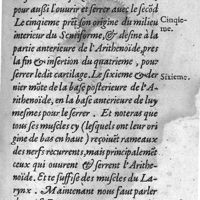 pour aussi l'ouurir et serrer auec le secõd
Le cinqieme prẽt son origine du milieu
interieur du Scutiforme, & desine à la
partie anterieure de l'Arithenoïde, pres
la fin & insertion du quatrieme, pour
serrer ledit cartilage. Le sixieme & der
nier mõte de la base posterieure de l'A-
rithenoïde, en la base anterieure de luy
mesmes pour le serrer. Et noteras que
tous ses muscles cy (lesquels ont leur ori
gine de bas en haut) reçoiuẽt rameaux
des nerfs recurrents, mais principalemẽt
ceux qui ouurent & serrent l'Arithe-
noïde. Et te suffise des muscles du La-
rynx. Maintenant nous faut parler
Cinqie-
me.
Sixieme.